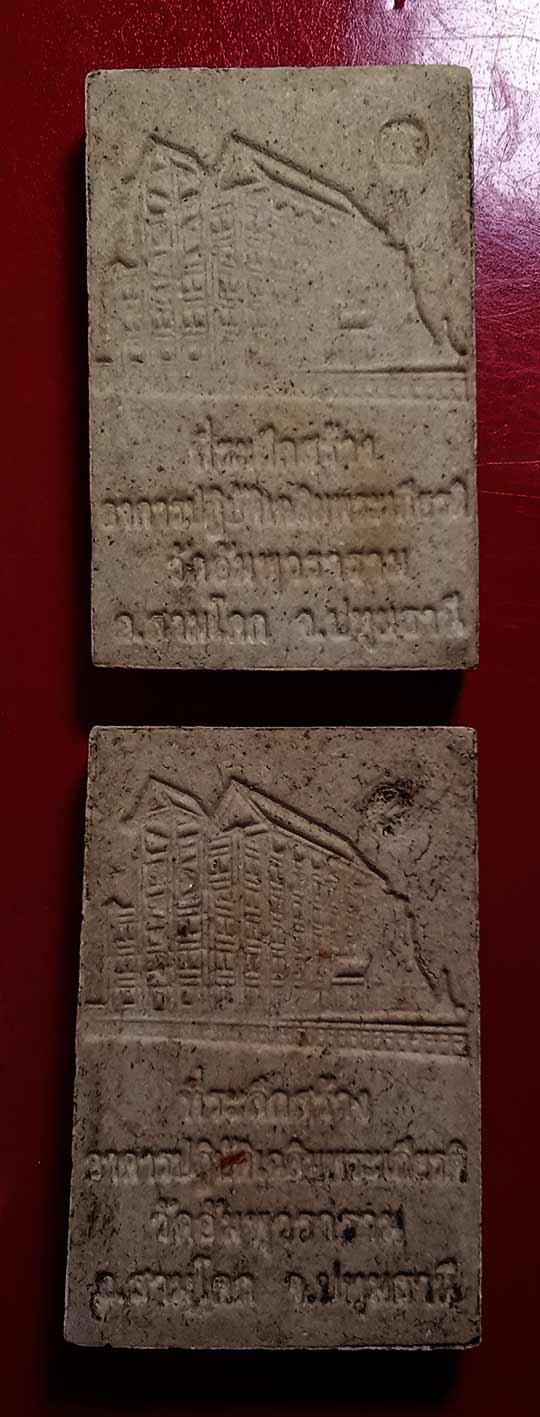 ที่ระลึกสร้าง
อาคารปฏิบัติเฉลิมพระเกียรติ
วัดอัมพุวราราม
อ.สามโคก จ.ปทุมธานี
ที่ระลึกสร้าง
อาคารปฏิบัติเฉลิมพระเกียรติ
วัดอัมพุวราราม
อ.สามโคก จ.ปทุมธานี